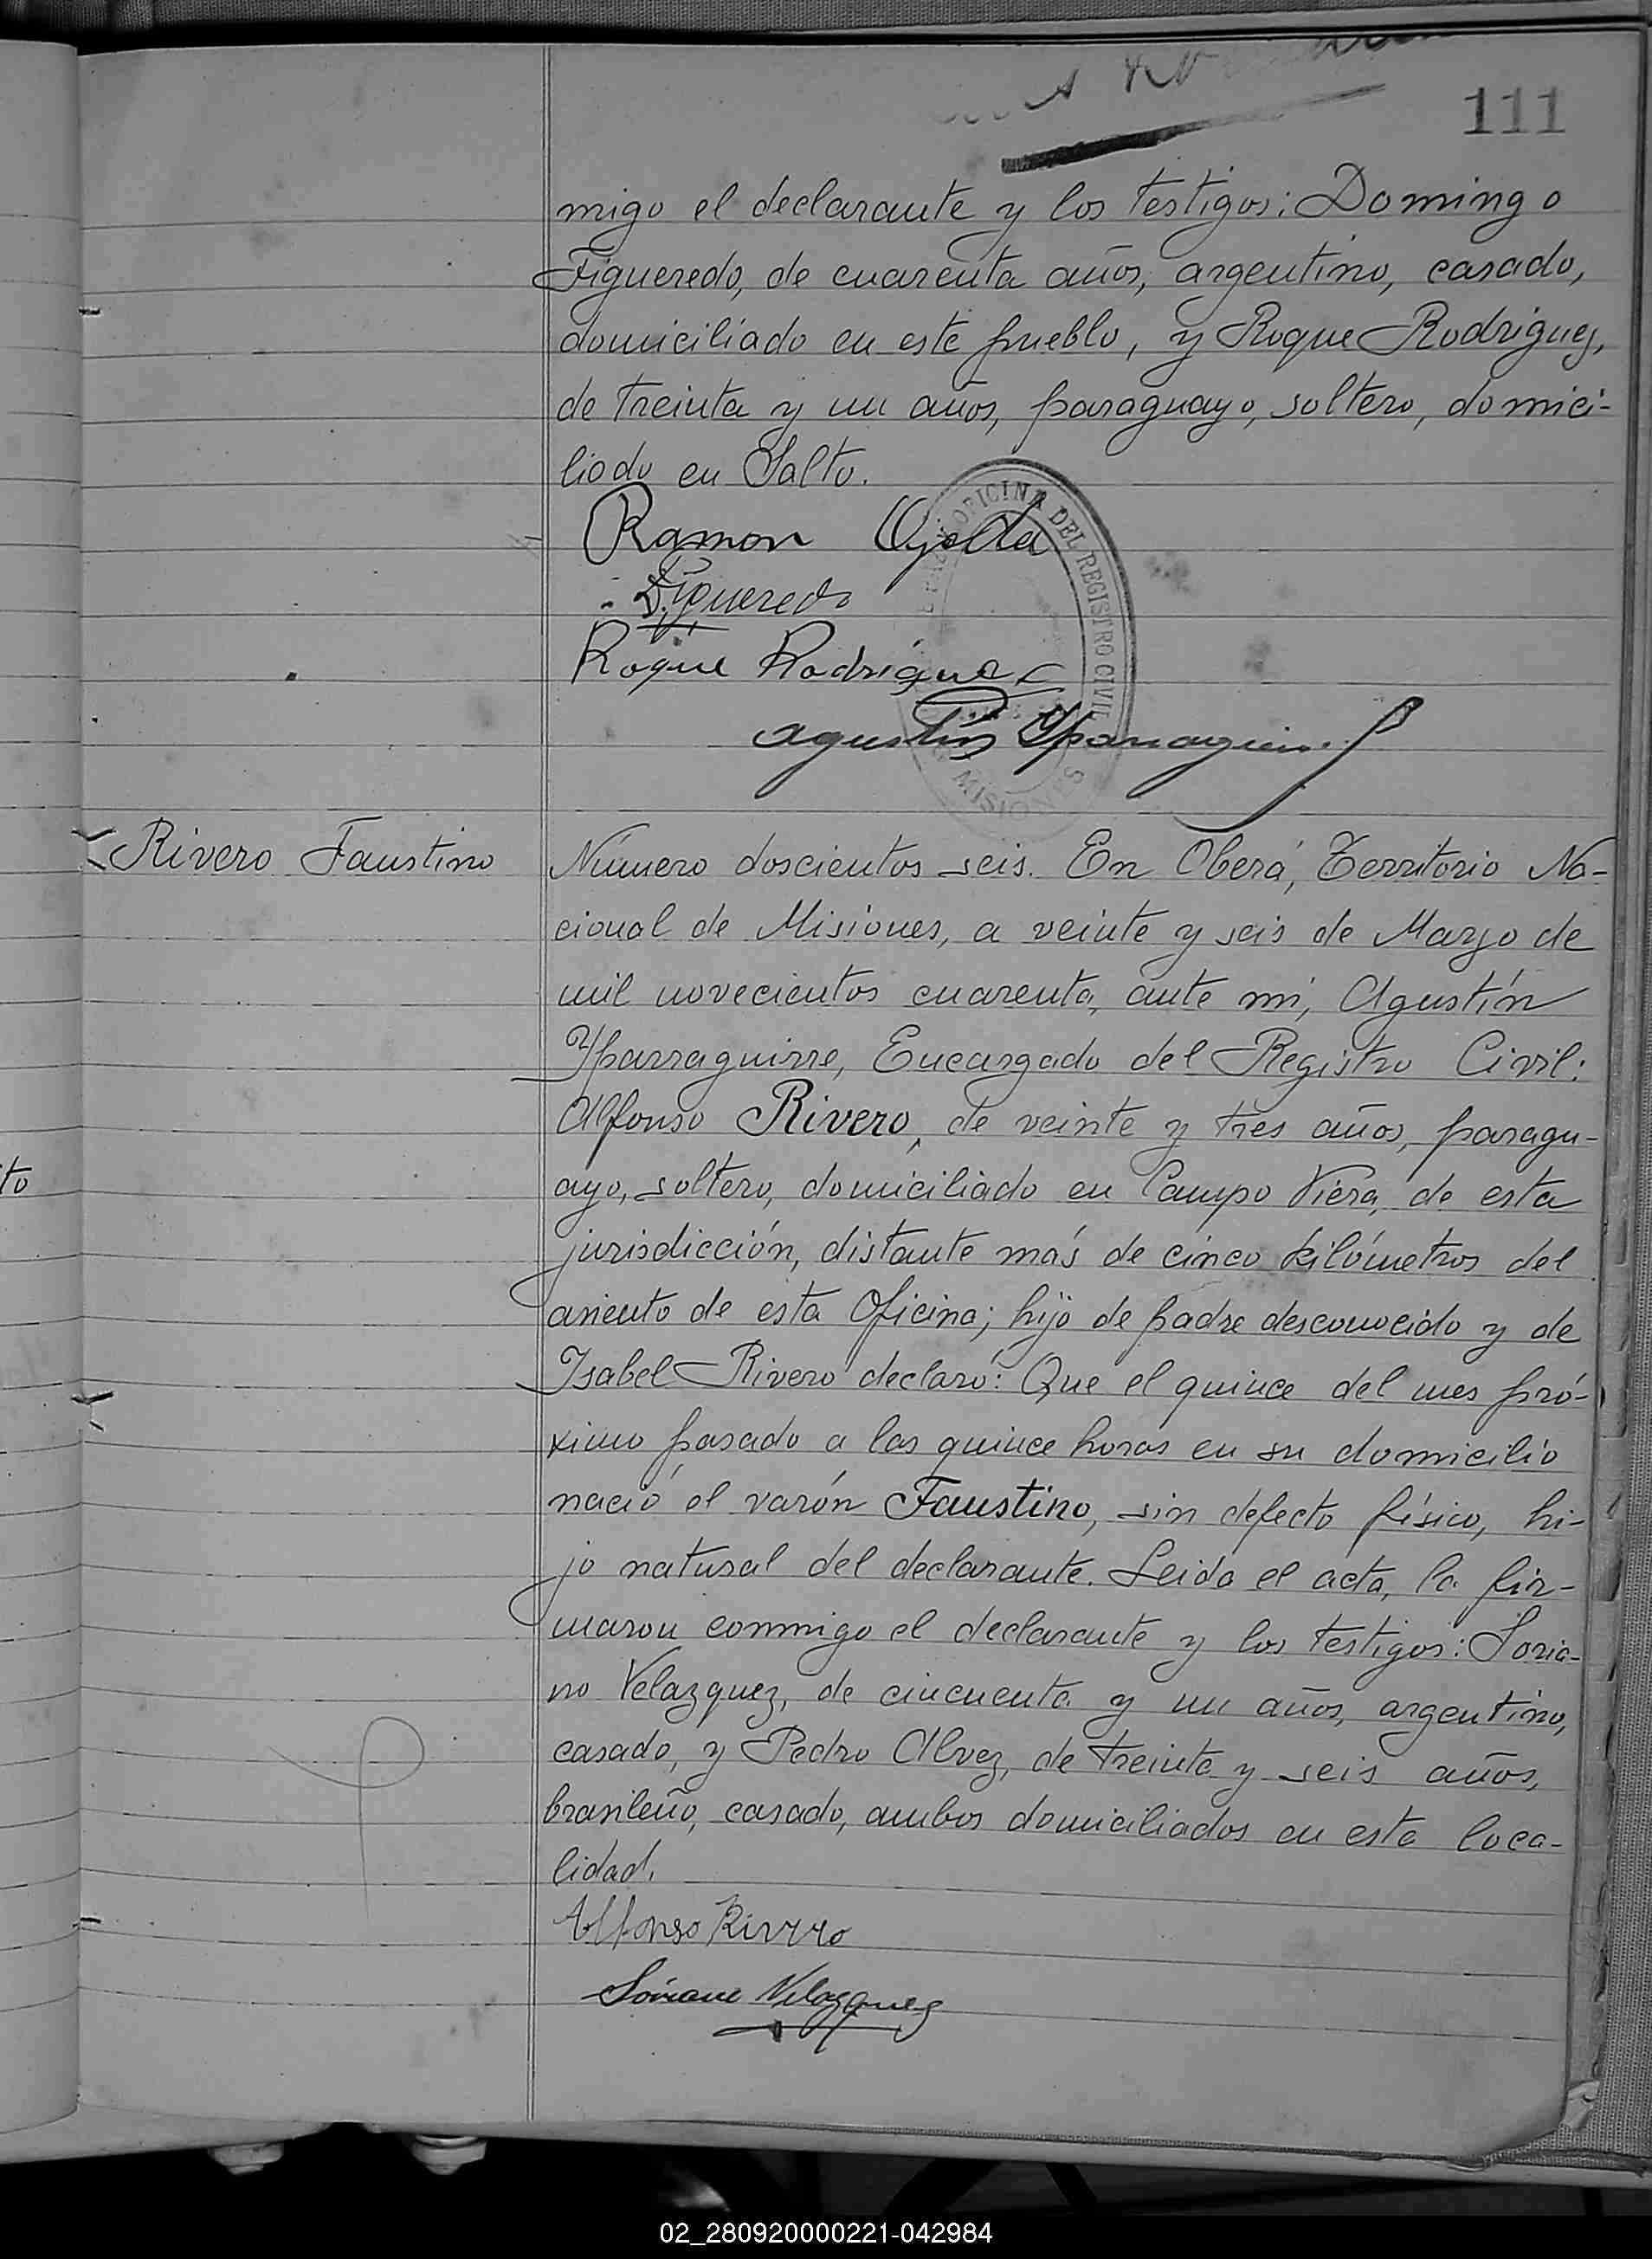 111
migo el declarante y los testigos: Domingo
Figueredo, de cuarenta años, argentino, casado,
domiciliado en este pueblo, y Roque Rodriguez,
de treinta y un años, paraguayo, soltero, domici-
liado en Salto.
OFICINA DEL REGISTRO CIVIL
MISIONES
Ramon Ojeda
D. Figueredo
Roque Rodriguez
Agustín Yparraguirre
Rivero Faustino
Número doscientos seis. En Oberá, Territorio Na-
cional de Misiones, a veinte y seis de Marzo de
mil novecientos cuarenta, ante mi, Agustín
Yparraguirre, Encargado del Registro Civil:
Alfonso Rivero, de veinte y tres años, paragu-
ayo, soltero, domiciliado en Campo Viera, de esta
jurisdicción, distante más de cinco kilómetros del
asiento de esta Oficina; hijo de padre desconocido y de
Ysabel Rivero declaró: Que el quince del mes pró-
ximo pasado a las quince horas en su domicilio
nació el varón Faustino, sin defecto físico, hi-
jo natural del declarante. Leida el acta, la fir-
maron conmigo el declarante y los testigos: Soria-
no Velazquez, de cincuenta y un años, argentino,
casado, y Pedro Alvez, de treinta y seis años,
brasileño, casado, ambos domiciliados en esta loca-
lidad.
to
Alfonso Rivero
Soriano Velazquez
02_280920000221-042984